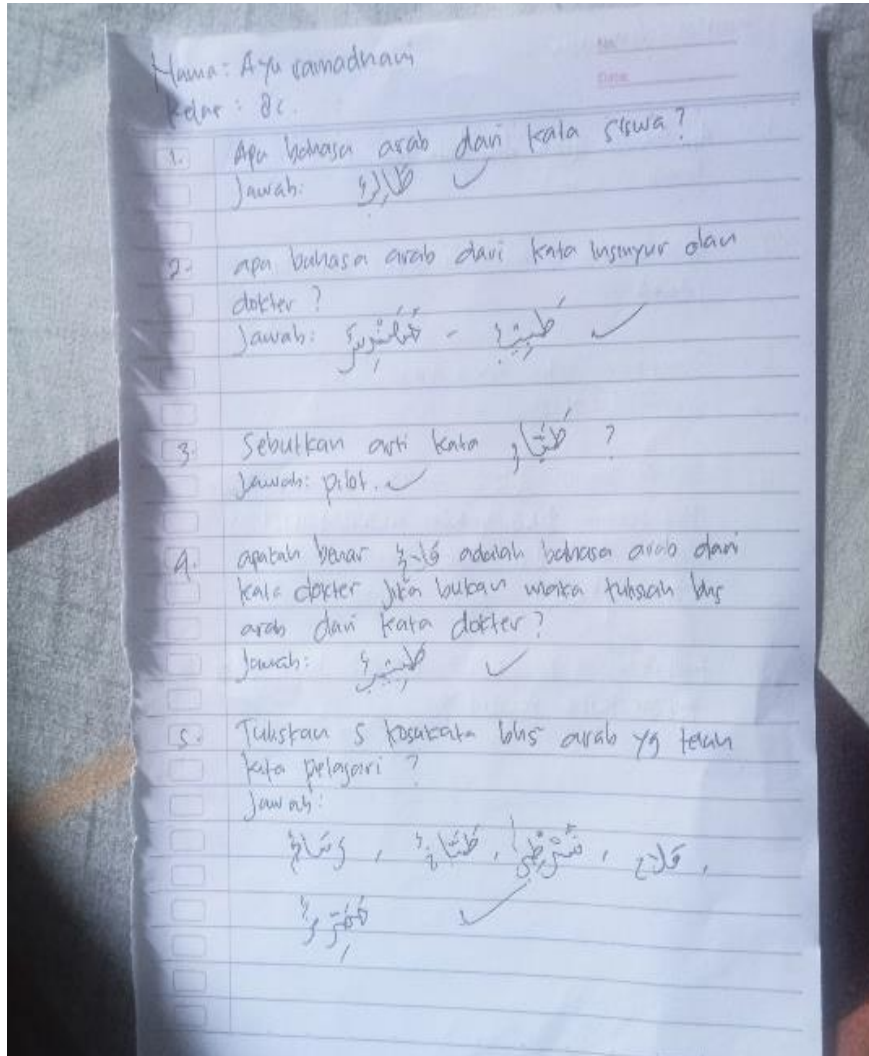 No.
Date
Nama: Ayu ramadhani
Kelas : 8c.
1. Apa bahasa arab dari kata siswa?
Jawab: طَالِبٌ
2. apa bahasa arab dari kata insinyur dan
dokter?
Jawab: مُهَنْدِسٌ - طَبِيْبٌ
3. Sebutkan arti kata طَيَّارٌ ?
Jawab: pilot.
4. apakah benar adalah bahasa arab dari
kata dokter jika bukan maka tulislah bhs
arab dari kata dokter?
Jawab: طَبِيْبٌ
5. Tuliskan 5 kosakata bhs arab yg telah
kita pelajari?
Jawab:
فلاح , شُرْطِيٌّ , رَسَّامٌ ,